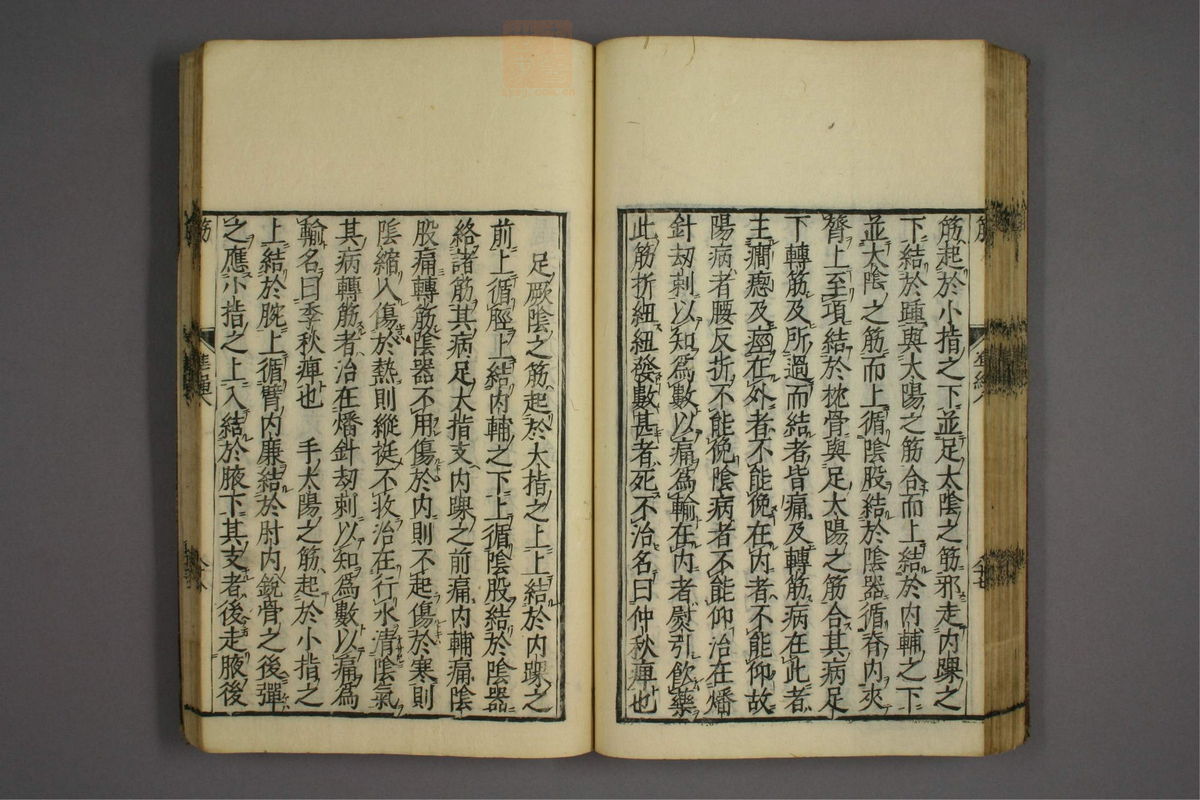 筋起於小指之下並足太陰之筋邪走內踝之
下結於踵與太陽之筋合而上結於內輔之下
並太陰之筋而上循陰股結於陰器循脊內夾
膂上至項結於枕骨與足太陽之筋合其病足
下轉筋及所過而結者皆痛及轉筋病在此者
主癇瘛及痙在外者不能俛在內者不能仰故
陽病者腰反折不能俛陰病者不能仰治在燔
針刼刺以知為數以痛為輸在內者熨引飲藥
此筋折紐紐發數甚者死不治名曰仲秋痺也
足厥陰之筋起於大指之上上結於內踝之
前上循脛上結內輔之下上循陰股結於陰器
絡諸筋其病足大指支內踝之前痛內輔痛陰
股痛轉筋陰器不用傷於內則不起傷於寒則
陰縮入傷於熱則縱挺不收治在行水清陰氣
其病轉筋者治在燔針刼刺以知為數以痛為
輸名曰季秋痺也 手太陽之筋起於小指之
上結於腕上循臂內廉結於肘內銳骨之後彈
之應小指之上入結於腋下其支者後走腋後
筋